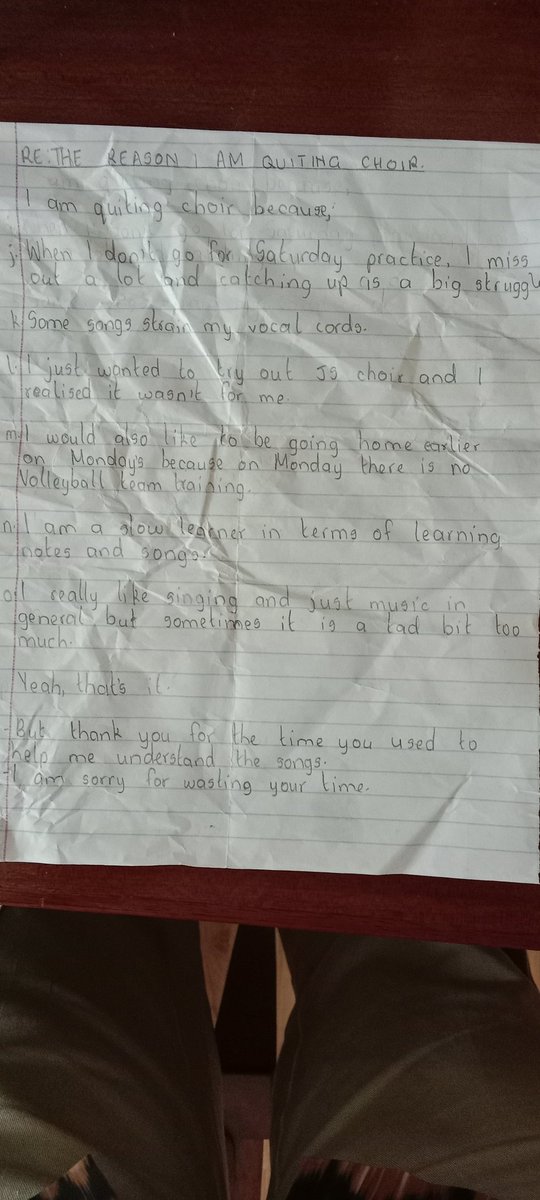 RE: THE REASON I AM QUITING CHOIR.
I am quiting choir because;
j. When I don't go for Saturday practice, I miss
out a lot and catching up is a big struggl
k. Some songs strain my vocal cords.
l. I just wanted to try out JS choir and I
realised it wasn't for me.
m. I would also like to be going home earlier
on Monday's because on Monday there is no
Volleyball team training.
n. I am a slow learner in terms of learning
notes and songs.
o. I really like singing and just music in
general but sometimes it is a tad bit too
much.
Yeah, that's it.
- But thank you for the time you used to
help me understand the songs.
- I am sorry for wasting your time.